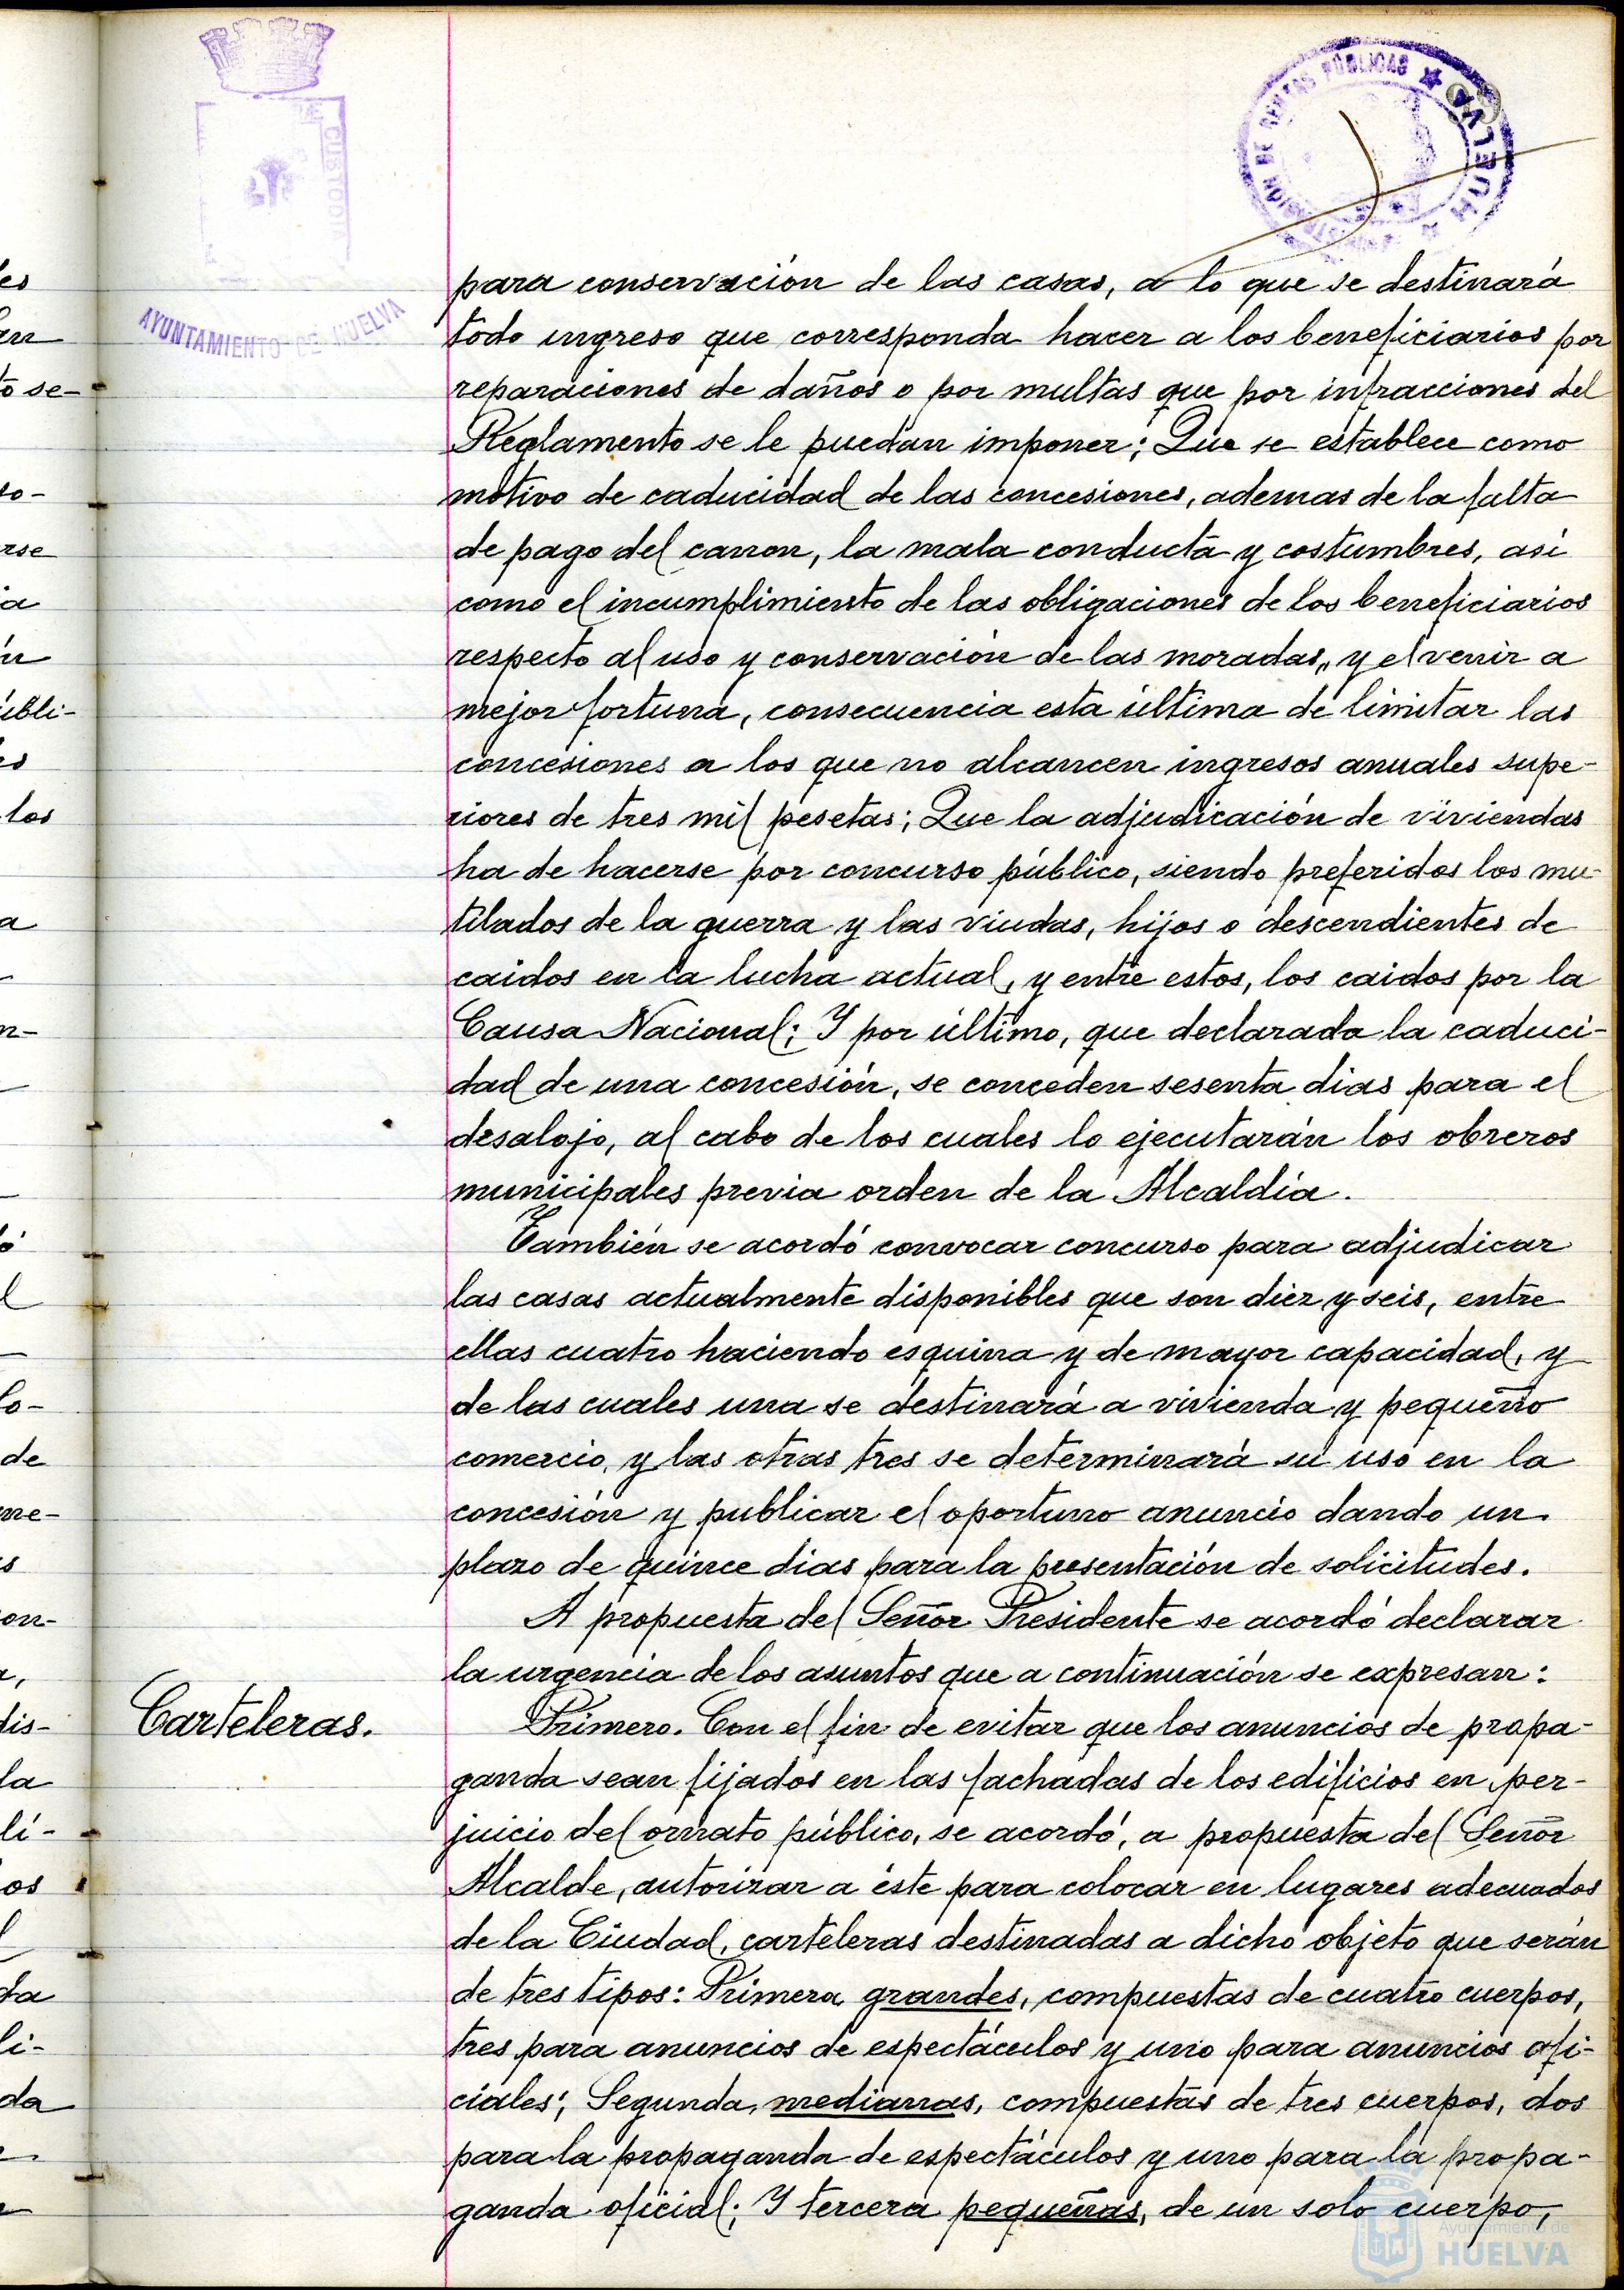 AYUNTAMIENTO DE HUELVA
PÚBLICAS ★ HUELVA
para conservación de las casas, a lo que se destinará
todo ingreso que corresponda hacer a los beneficiarios por
reparaciones de daños o por multas que por infracciones del
Reglamento se le puedan imponer; Que se establece como
motivo de caducidad de las concesiones, ademas de la falta
de pago del canon, la mala conducta y costumbres, asi
como el incumplimiento de las obligaciones de los beneficiarios
respecto al uso y conservación de las moradas, y el venir a
mejor fortuna, consecuencia esta última de limitar las
concesiones a los que no alcancen ingresos anuales supe-
riores de tres mil pesetas; Que la adjudicación de viviendas
ha de hacerse por concurso público, siendo preferidos los mu-
tilados de la guerra y las viudas, hijos o descendientes de
caidos en la lucha actual, y entre estos, los caidos por la
Causa Nacional; Y por último, que declarada la caduci-
dad de una concesión, se conceden sesenta dias para el
desalojo, al cabo de los cuales lo ejecutarán los obreros
municipales previa orden de la Alcaldía.
También se acordó convocar concurso para adjudicar
las casas actualmente disponibles que son diez y seis, entre
ellas cuatro haciendo esquina y de mayor capacidad, y
de las cuales una se destinará a vivienda y pequeño
comercio, y las otras tres se determinará su uso en la
concesión y publicar el oportuno anuncio dando un
plazo de quince dias para la presentación de solicitudes.
A propuesta del Señor Presidente se acordó declarar
la urgencia de los asuntos que a continuación se expresan:
Carteleras.
Primero. Con el fin de evitar que los anuncios de propa-
ganda sean fijados en las fachadas de los edificios en per-
juicio del ornato público, se acordó, a propuesta del Señor
Alcalde, autorizar a éste para colocar en lugares adecuados
de la Ciudad, carteleras destinadas a dicho objeto que serán
de tres tipos: Primera grandes, compuestas de cuatro cuerpos,
tres para anuncios de espectáculos y uno para anuncios ofi-
ciales; Segunda, medianas, compuestas de tres cuerpos, dos
para la propaganda de espectáculos y uno para la propa-
ganda oficial; Y tercera pequeñas, de un solo cuerpo,
Ayuntamiento de
HUELVA